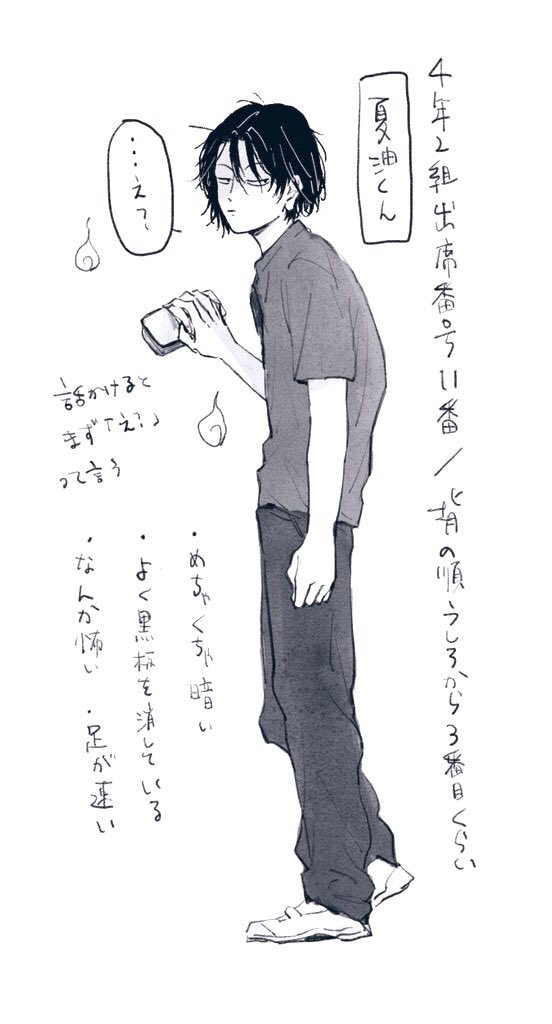 4年2組出席番号11番/背の順うしろから3番目くらい
夏油くん
…え？
話かけると
まず「え?」
って言う
・めちゃくちゃ暗い
・よく黒板を消している
・なんか怖い
・足が速い